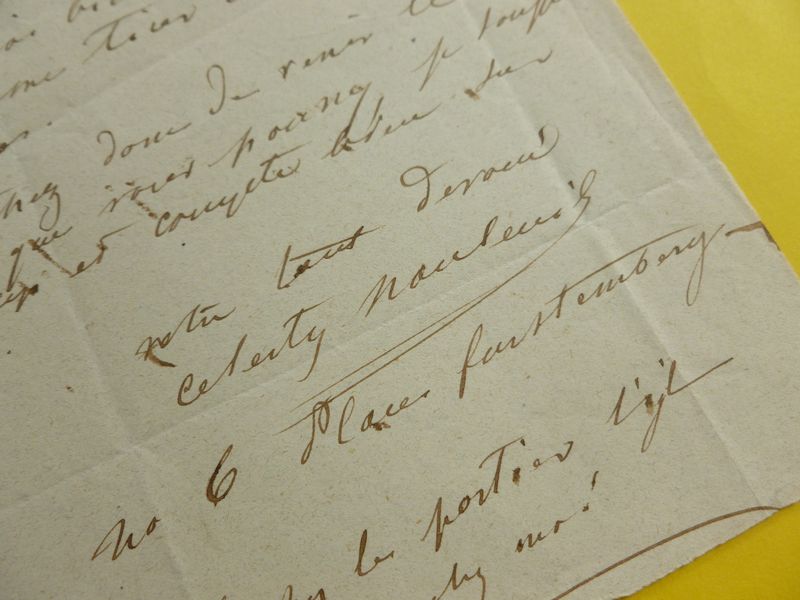 me tirer
donc de venir le
que vous pouvez je
et compte bien sur
votre tout devoué
celesty nanteuil
no 6 Place furstemberg
le portier s'il
chez moi